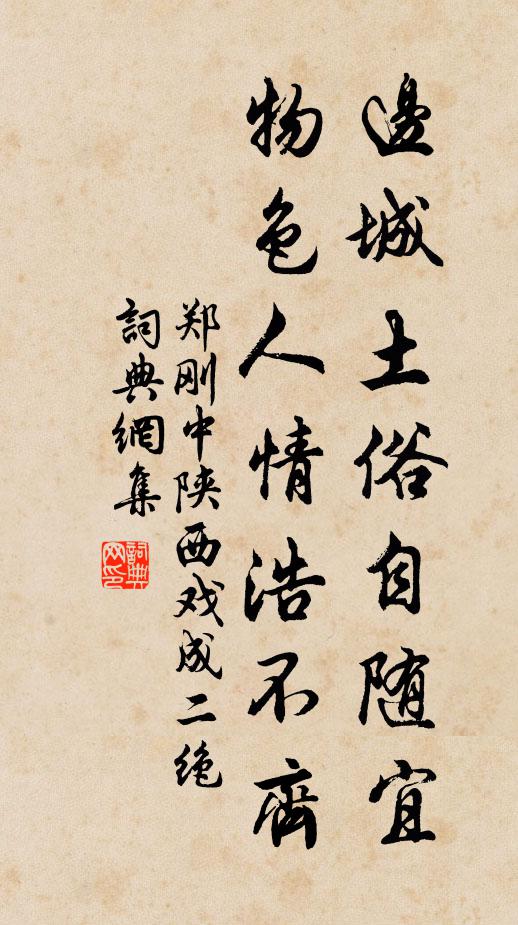 邊城土俗自随宜
物色人情浩不齊
郑刚中陕西戏成二绝
詞典網集
詞典网印